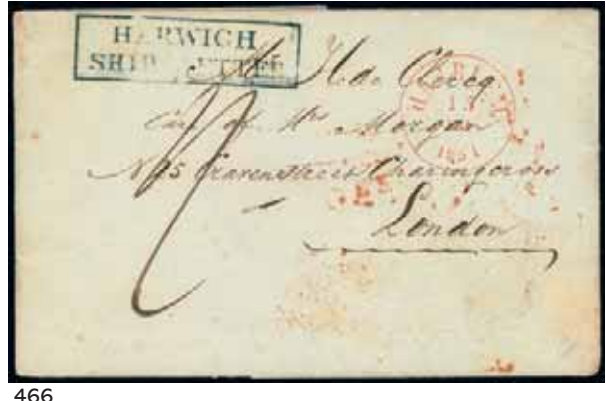 HARWICH
SHIP LETTER
H. de Clercq
Care of Mrs Morgan
No 25 Cravenstreet Charingcross
London
466